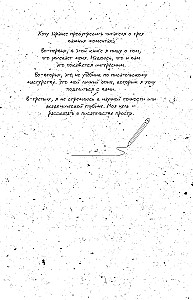 Хочу сразу предупредить читателя о трех
важных моментах.
Во-первых, в этой книге я пишу о том,
что волнует меня. Надеюсь, что и вам
это покажется интересным.
Во-вторых, это не учебник по писательскому
мастерству. Это мой личный опыт, которым я хочу
поделиться с вами.
В-третьих, я не стремлюсь к научной точности или
академической глубине. Моя цель –
рассказать о писательстве просто.